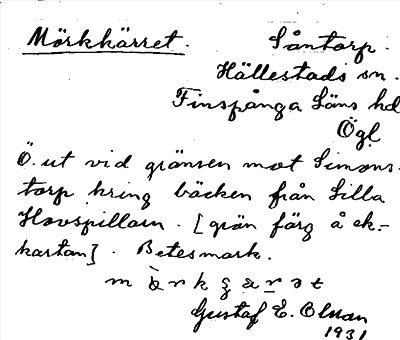 Mörkkärret. Såntorp.
Hällestads sn.
Finspånga Läns hd
Ögl
Ö. ut vid gränsen mot Simons-
torp kring bäcken från Lilla
Hovspillaren. [grön färg å ek.-
kartan]. Betesmark.
Gustaf E. Olsson
1931